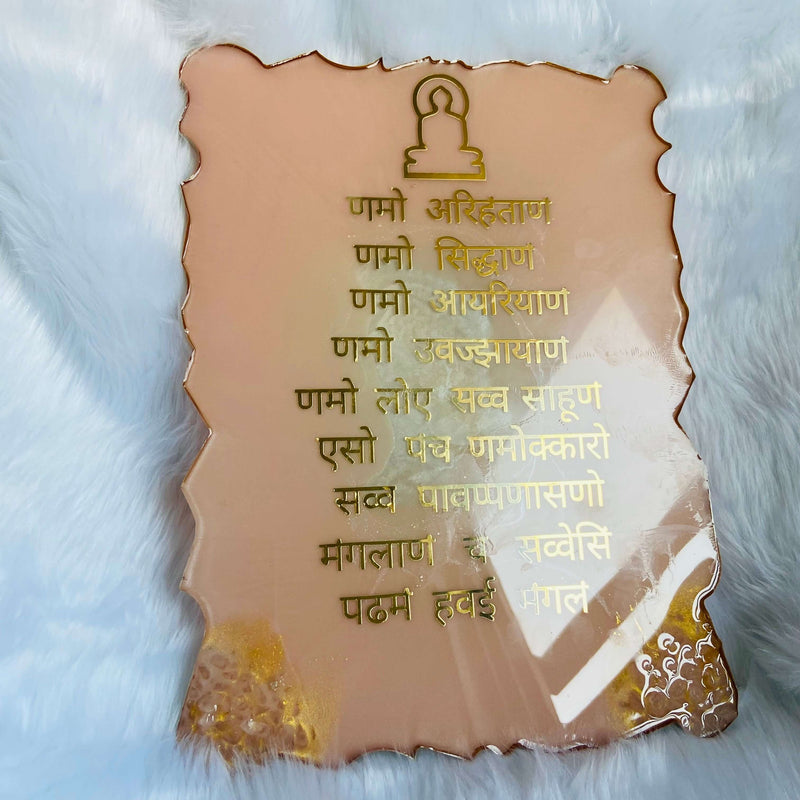 णमो अरिहंताणं
णमो सिद्धाणं
णमो आयरियाणं
णमो उवज्झायाणं
णमो लोए सव्व साहूणं
एसो पंच णमोक्कारो
सव्व पावप्पणासणो
मंगलाणं च सव्वेसिं
पढमं हवई मंगलं